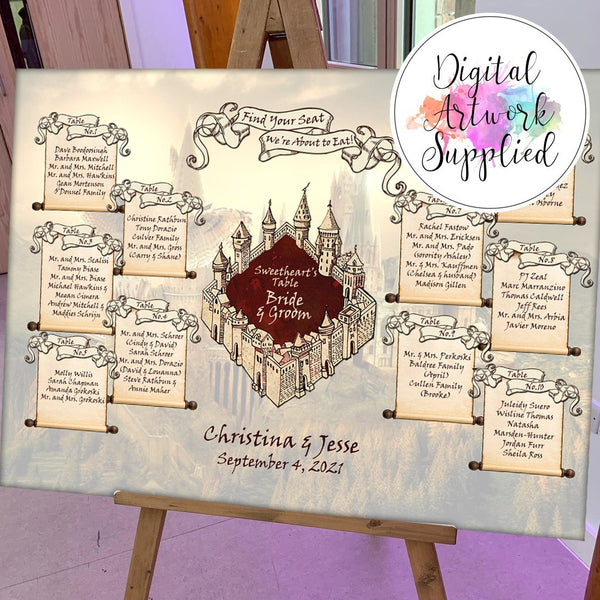 Digital
Artwork
Supplied
Find Your Seat
We're About to Eat!
Table
No.1
Dave Boodoosingh
Barbara Maxwell
Mr. and Mrs. Mitchell
Mr. and Mrs. Hawkins
Gean Mortenson
O'Donnel Family
Table
No.2
Christine Rathbun
Tony Dorazio
Culver Family
Mr. and Mrs. Goss
(Carry & Shane)
Table
No.3
Mr. and Mrs. Scalsi
Tammy Biase
Mr. and Mrs. Biase
Michael Hawkins &
Megan Cimera
Andrew Mitchell &
Maddies Schrijn
Table
No.4
Mr. and Mrs. Schroer
(Cindy & David)
Sarah Schroer
Mr. and Mrs. Dorazio
(David & Louanna)
Steve Rathbun &
Annie Maher
Table
No.5
Molly Willis
Sarah Chapman
Amanda Grokoski
Mr. and Mrs. Grokoski
Sweetheart's
Table
Bride
& Groom
Osborne
Table
No.7
Rachel Fastow
Mr. and Mrs. Ericksen
Mr. and Mrs. Pado
(sorority Ashley)
Mr. & Mrs. Kauffmen
(Chelsea & husband)
Madison Gillen
Table
No.8
PJ Zeal
Marc Marranzino
Thomas Caldwell
Jeff Roes
Mr. and Mrs. Arbia
Javier Moreno
Table
No.9
Mr. and Mrs. Perkoski
Baldree Family
(April)
Cullen Family
(Brooke)
Table
No.10
Juleidy Suero
Wisline Thomas
Natasha
Marsden-Hunter
Jordan Furr
Sheila Ross
Christina & Jesse
September 4, 2021